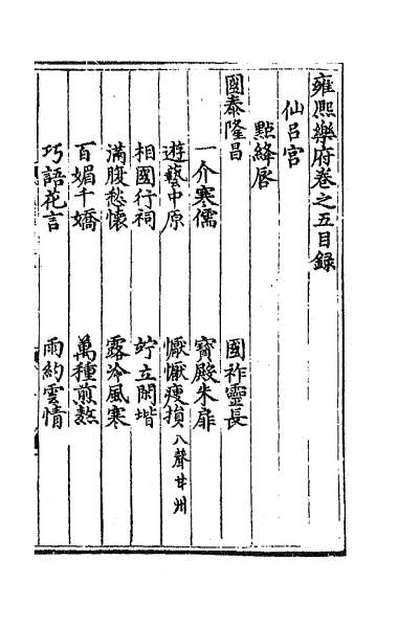 雍熈樂府卷之五目録
仙吕宫
點絳唇
國泰隆昌　國祚靈長
一介寒儒　寳殿朱扉
遊藝中原　懨懨瘦損八聲甘州
相國行祠　竚立閑堦
滿腹愁懷　露冷風寒
百媚千嬌　萬種煎熬
巧語花言　雨約雲情